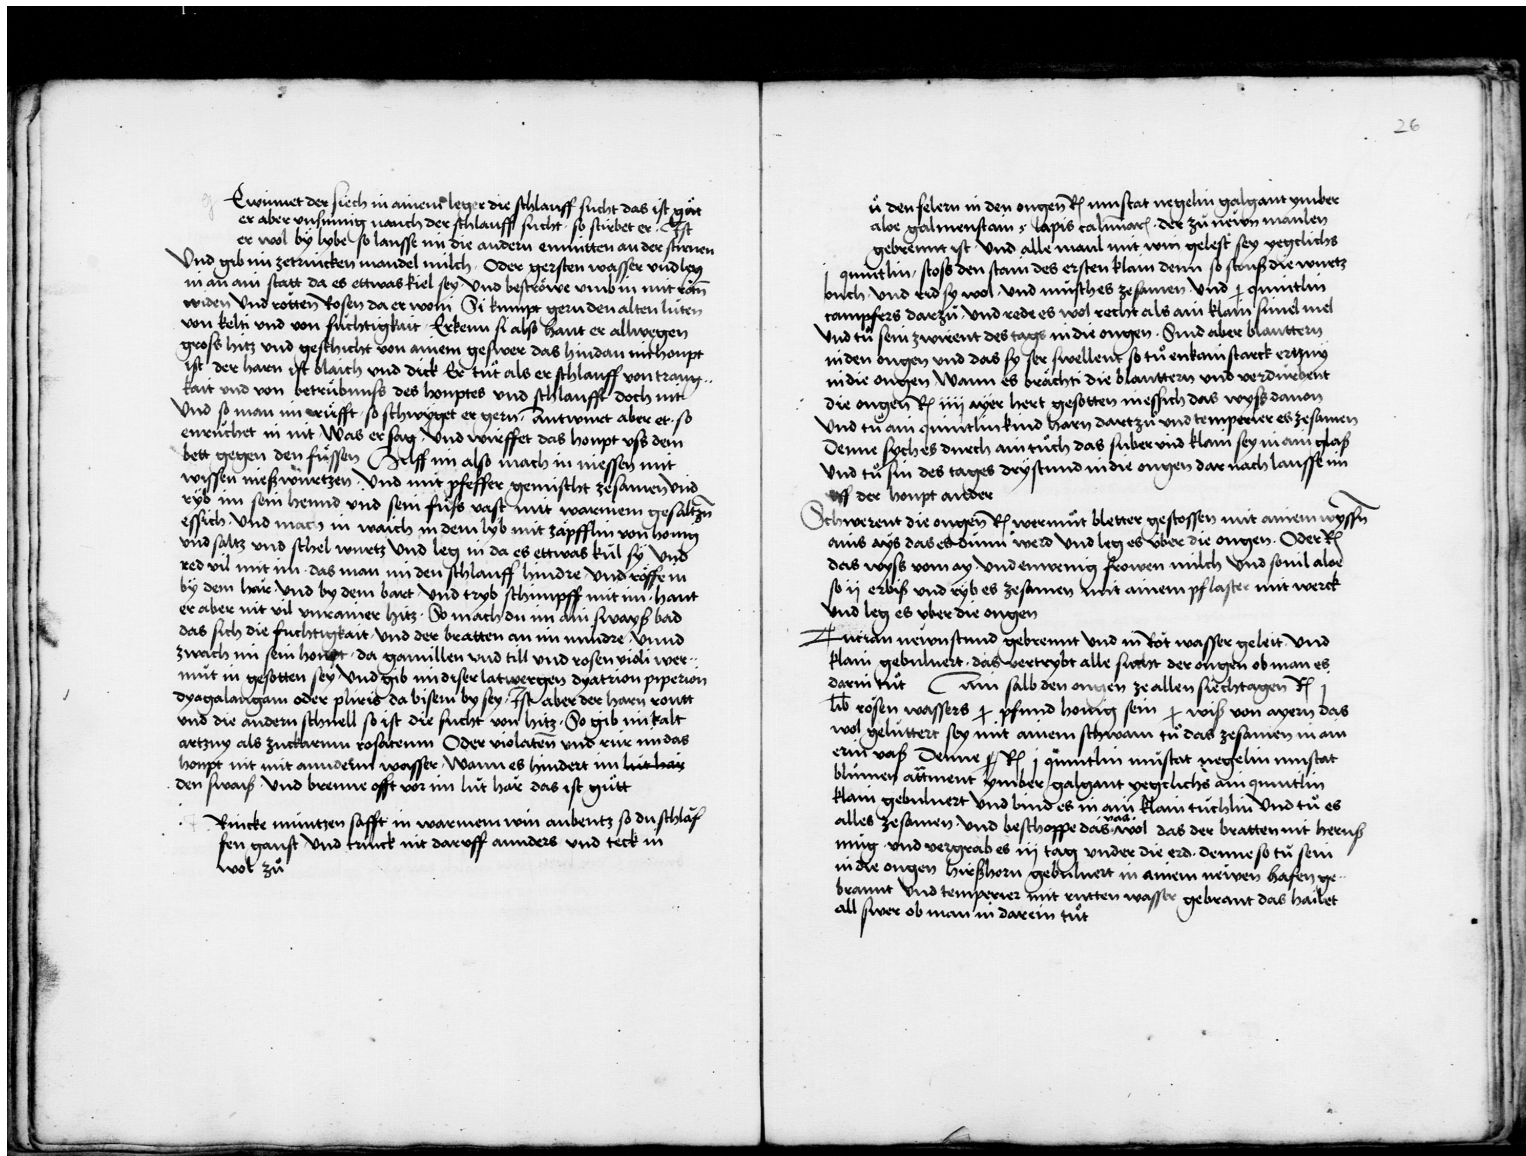 Ewinnet der siech in ainem leger die schlauff sucht das ist güt
er aber vnsinnig nauch der schlauff sucht · so stirbet er · Ist
er wol by lybe so lausse im die audern enmitten an der stirnen
Vnd gib im zetrincken mandel milch · Oder gersten wasser vnd leg
in an ain statt da es ettwas kiel sey Vnd beströwe vmb in mit
widen Vnd rotten Rosen da er won Si kumpt gern den alten lüten
von kelti vnd von füchtigkait · Erkenn si also haut er allwegen
gross hitz vnd geschicht von ainem geswer das hindan im houpt
ist · der harn ist blaich vnd dick Er tůt als er schlauff von traug
kait vnd von betrübnuss des houptes vnd schlaufft doch nit
Vnd so man im rüfft · so schwyget er gern · Antwurt aber er · so
enrüchet in nit Was er sag Vnd würffet das houpt vss dem
bett gegen den füssen Hilff im also mach in niessen mit
wissen nießwurtzen · Vnd mit pfeffer gemischt zesamen vnd
ryb im sein hennd vnd sein füß vast mit warmem gesaltzn̄
essich · Vnd mach in waich in dem lyb mit zäpfflin von honig
vnd saltz vnd schel wurtz Vnd leg in da es ettwas kül sy Vnd
red vil mit im · das man im den schlauff hindre Vnd röffe in
by dem här · Vnd by dem bart Vnd tryb schimpff mit im · haut
er aber nit vil vnrainer hitz · So mach du im ain swayß bad
das sich die fuchtigkait Vnd der bratten an im mindre · Vnnd
zwach im sein houpt · da gamillen vnd till vnd rosen violi wer
můt in gesotten sey Vnd gib im diser latwergen dyatrion piperion
dyagalangam oder pliris da bisem by sey · Ist aber der harn routt
vnd die audern schnell so ist die sucht von hitz · So gib im kalt
artzny als zuckarum rosaceum Oder violaten̄ vnd rür im das
houpt nit mit annderm wasser Wann es hindert im lüt här
den swaiß · Vnd brenne offt vor im lüt här das ist gůtt
Rincke müntzen safft in warmem win aubentz so du schlaf
fen gaust Vnd trinck nit daruff annders vnd teck in
wol zů
26
ů den felern in den ougen ℞ muscat negelin galgant ymber
aloe galmenstain · lapis calminar̄ · der zü newn maulen
gebrennt ist · Vnd alle maul mit win gelest sey yegclichs
j quintlin / stoss den stain des ersten klain denn so stouß die wurtz
ouch · vnd rid sy wol · vnd müsch es zesamen · Vnd quintlin
campfers darzů Vnd rede es wol recht als ain klain simel mel
Vnd tů sein zwirent des tags in die ougen · Sind aber blauttern
in den ougen vnd das sy ser swellent so tů enkain starck ertzny
in die ougen Wann es brächti die blauttern vnd verdürbent
die ougen ℞ iiij ayer hert gesotten niessich das wyss dauon
Vnd tů ain quintlin kind harn dartzů vnd temperier es zesamen
Denne sych es durch ain tůch das suber vnd klain sey in ain glaß
Vnd tů sin des tages drystund in die ougen dar nach lausse im
vff der houpt auder
Schwerent die ougen ℞ wermůt bletter gestossen mit ainem wyssn̄
ains ays das es dünn werd Vnd leg es vber die ougen · Oder ℞
das wyss vom ay · vnd ein wenig frowen milch Vnd souil aloe
so ij erbiß vnd ryb es zesamen mit ainem pflaster mit werck
Vnd leg es vber die ougen
Tucian newnstund gebrennt Vnd in Rot wasser geleit · Vnd
klain gebuluert · das vertrybt alle sucht der ougen ob man es
darin tůt Ain salb den ougen ze allen siechtagen ℞ j
lib rosen wassers pfund honig sein wiß von ayern das
wol gelüttert sey mit ainem schwam tů das zesamen in ain
erin vaß Denne ℞ j quintlin müscat negelin muscat
blůmen ymber galgant yegclichs ain quintlin
klain gebuluert Vnd bind es in ain klain tüchlin Vnd tů es
alles zesamen Vnd beschoppe das vas wol das der bratten nit heruß
müg · vnd vergrab es iij tag vnder die erd · denne so tů sein
in die ougen hirßhorn gebuluert in ainem neiwen hafen ge
brannt Vnd temperier mit rutten wasser gebrant das hailet
all swer ob man in darein tůt